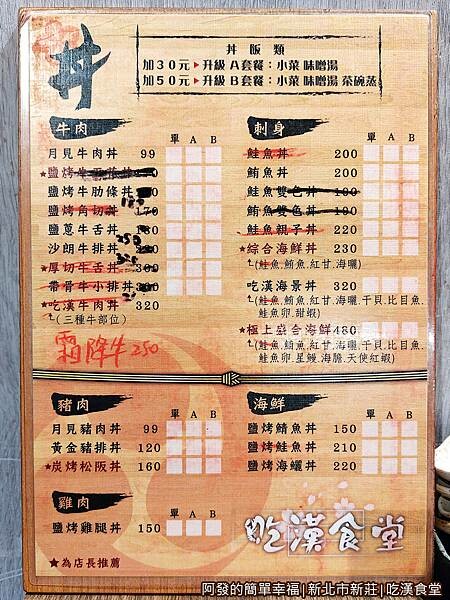 丼
丼飯類
加30元▶升級A套餐：小菜 味噌湯
加50元▶升級B套餐：小菜 味噌湯 茶碗蒸
牛肉
單 A B
月見牛肉丼 99
鹽烤牛肋條丼
鹽烤角切丼 170
鹽蔥牛舌丼
沙朗牛排丼 250
★厚切牛舌丼 300
帶骨牛小排丼
★吃漢牛肉丼 320
(三種牛部位)
霜降牛250
刺身
單 A B
鮭魚丼 200
鮪魚丼 200
鮭魚雙色丼 190
鮪魚雙色丼 190
鮭魚親子丼 220
★綜合海鮮丼 230
(鮭魚.鮪魚.紅甘.海曬)
吃漢海景丼 320
(鮭魚.鮪魚.紅甘.海曬.干貝.比目魚.
鮭魚卵.甜蝦)
★極上盛合海鮮480
(鮭魚.鮪魚.紅甘.海曬.干貝.比目魚.
鮭魚卵.星鰻.海膽.天使紅蝦)
豬肉
單 A B
月見豬肉丼 99
黃金豬排丼 120
★炭烤松阪丼 160
雞肉
單 A B
鹽烤雞腿丼 150
★為店長推薦
海鮮
單 A B
鹽烤鯖魚丼 150
鹽烤鮭魚丼 210
鹽烤海鱺丼 220
吃漢食堂
阿發的簡單幸福|新北市新莊|吃漢食堂